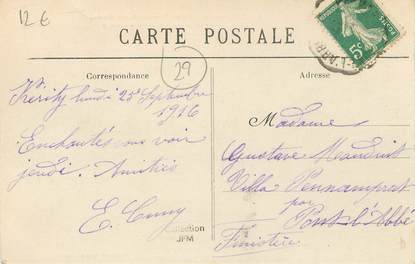 12 €
CARTE POSTALE
29
5c
Correspondance
Adresse
Kérity lundi 25 Septembre
1916
Enchantés vous voir
jeudi. Amitiés
E.
Collection
JFM
Madame
Gustave
Villa
par
Pont-l'Abbé
Finistère